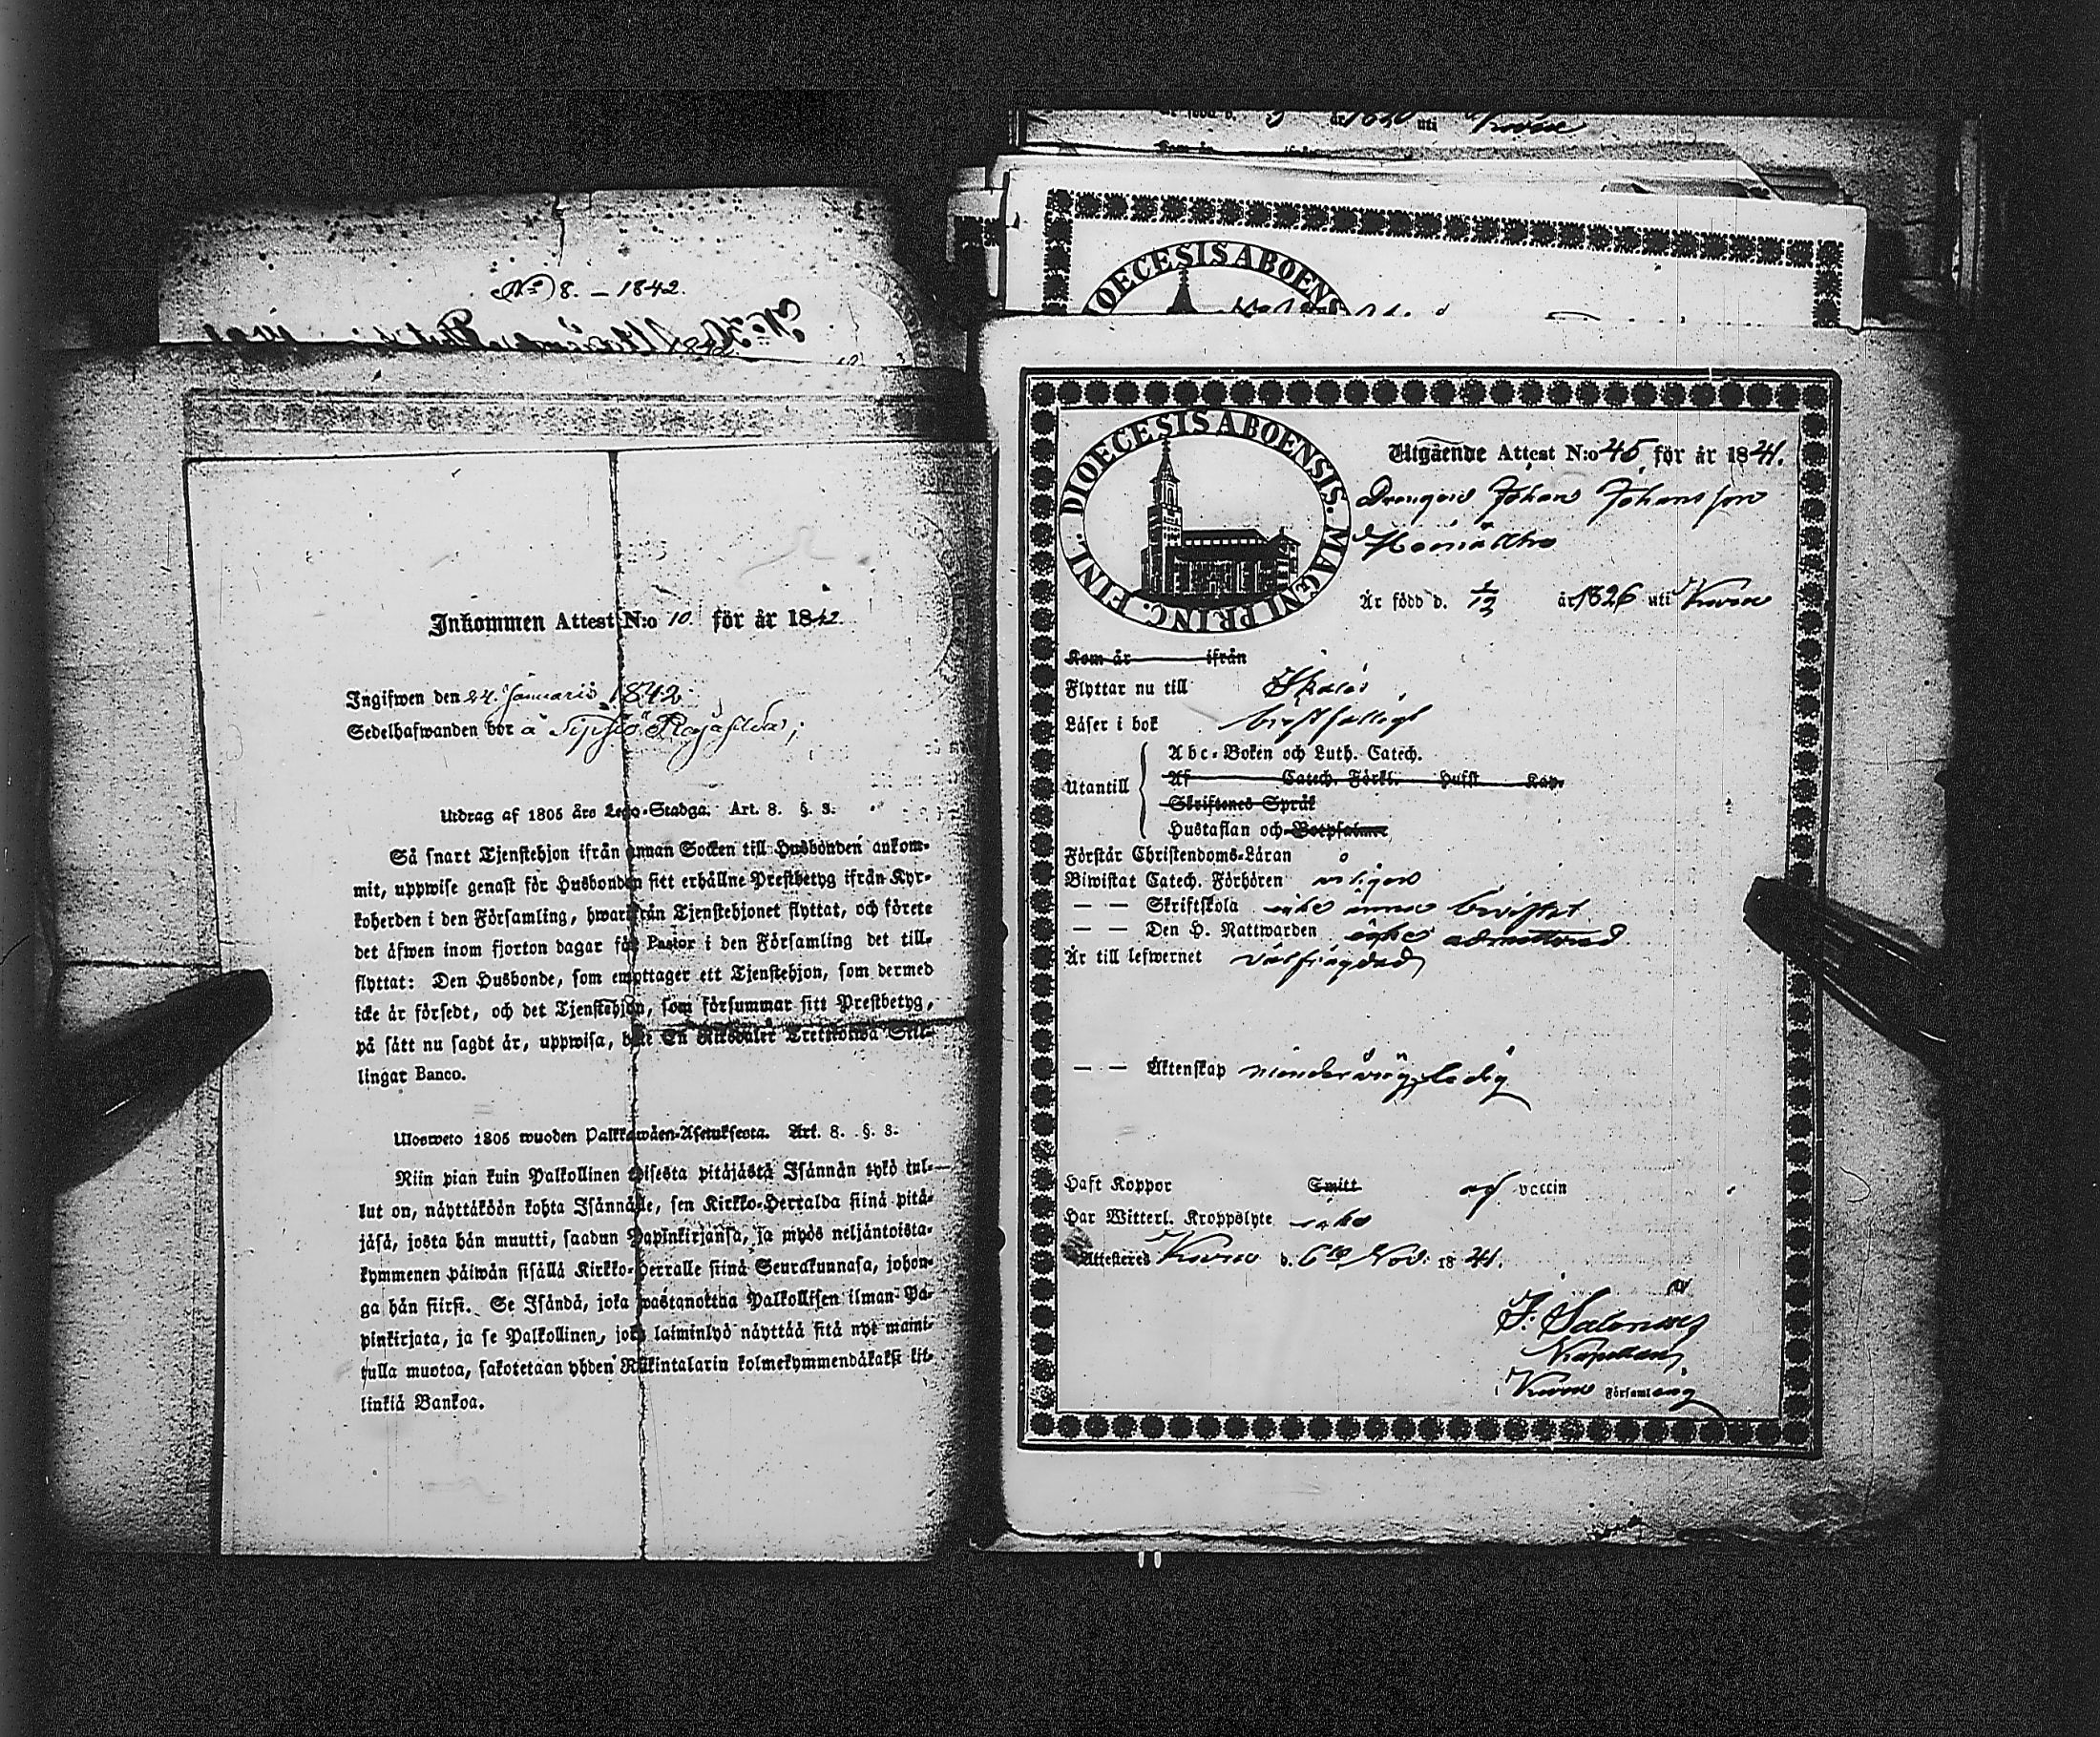 No 8. – 1842.
Inkommen Attest N:o 10 för år 1842.
Ingifwen den 24. Januarii 1842.
Sedelhafwanden bor å
Utdrag af 1805 års Lego-Stadga. Art. 8. §. 3.
Så snart Tjenstehjon ifrån annan Socken till Husbonden ankom-
mit, uppwise genast för Husbonden sitt erhållne Prestbetyg ifrån Kyr-
koherden i den Församling, hwarifrån Tjenstehjonet flyttat, och förete
det äfwen inom fjorton dagar för Pastor i den Församling det till-
flyttat: Den Husbonde, som emottager ett Tjenstehjon, som dermed
icke är försedt, och det Tjenstehjon, som försummar sitt Prestbetyg,
på sätt nu sagdt är, uppwisa, böte En Riksdaler Trettiotwå Skil-
lingar Banco.
Ulosweto 1805 wuoden Palkkawäen-Asetuksesta. Art. 8. §. 3.
Niin pian kuin Palkollinen toisesta pitäjästä Isännän tykö tul-
lut on, näyttäköön kohta Isännälle, sen Kirkko-Herralda siinä pitä-
jäsä, josta hän muutti, saadun Papinkirjansa, ja myös neljäntoista-
kymmenen päiwän sisällä Kirkko-Herralle siinä Seurakunnasa, johon-
ga hän siirsi. Se Isändä, joka wastanottaa Palkollisen ilman Pa-
pinkirjata, ja se Palkollinen, joka laiminlyö näyttää sitä nyt maini-
tulla muotoa, sakotetaan yhden Riikintalarin kolmekymmendäkaksi kil-
linkiä Bankoa.
är född d. år 1820 uti
Kom år ifrån
DIOECESIS ABOENS
DIOECESIS ABOENSIS. MAGNI PRINC. FINL.
Utgående Attest N:o 45 för år 1841.
Drengen Johan Johansson
Är född d. 1/13 år 1826 uti Kumo
Kom år ifrån
Flyttar nu till
Läser i bok bristfälligt
Utantill
Abc-Boken och Luth. Catech.
Af Catech. Förkl. Hufst Kap.
Skriftenes Språk
Hustaflan och Botpsalmer
Förstår Christendoms-Läran
Biwistat Catech. Förhören årligen
— — Skriftskola icke ännu bivistat
— — Den H. Nattwarden icke admitterad
Är till lefwernet välfrägdad
— — Äktenskap minderårig, ledig
Haft Koppor Smitt af vaccin
Har Witterl. Kroppslyte icke
Attesteres Kumo d. 6te Nov: 1841.
Kapellan
i Kumo Församling